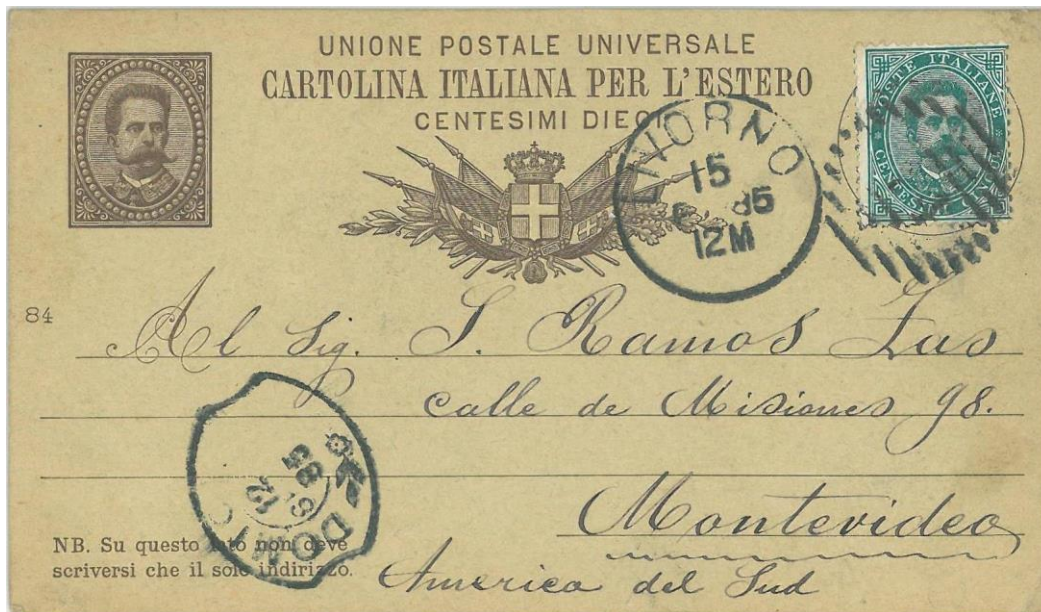 UNIONE POSTALE UNIVERSALE
CARTOLINA ITALIANA PER L'ESTERO
CENTESIMI DIECI
POSTE ITALIANE
CENTESIMI
LIVORNO
15
85
12M
84
Al Sig. S. Ramos Zas
Calle de Misiones 98.
Montevideo
America del Sud
85
6
12
DOMIC
NB. Su questo lato non deve
scriversi che il solo indirizzo.